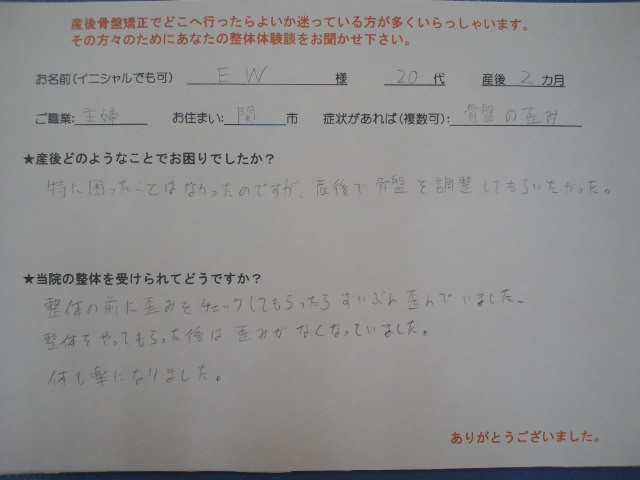 産後骨盤矯正でどこへ行ったらよいか迷っている方が多くいらっしゃいます。
その方々のためにあなたの整体体験談をお聞かせ下さい。
お名前(イニシャルでも可) E W 様 20 代 産後 2 カ月
ご職業: 主婦 お住まい: 関 市 症状があれば(複数可): 骨盤の歪み
★産後どのようなことでお困りでしたか?
特に困ったことはなかったのですが、産後で骨盤を調整してもらいたかった。
★当院の整体を受けられてどうですか?
整体の前に歪みをチェックしてもらったらずいぶん歪んでいました。
整体をやってもらった後は歪みがなくなっていました。
体も楽になりました。
ありがとうございました。